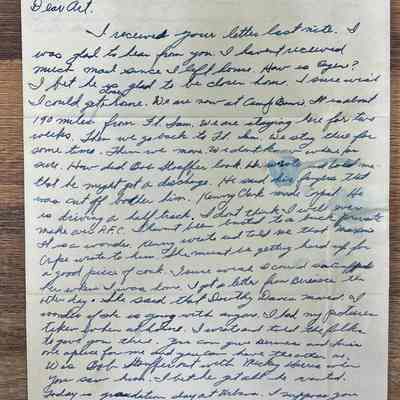 Dear Art.
I received your letter last nite. I
was glad to hear from you. I haven't received
much mail since I left home. How is Roger?
I bet he is glad to be closer home. I sure wish
I could get home. We are now at Camp Bowie. It is about
190 miles from Ft. Sam. We are staying here for two
weeks. Then we go back to Ft. Sam. We stay there for
some time. Then we move. We don't know where for
sure. How did Bob Shaffer look. He wrote and told me
that he might get a discharge. He said his fingers that
was cut off bother him. Kenny Clark made Cpl. He
is driving a half track. I don't think I will ever
make an P.F.C. I haven't been busted to a buck private
It is a wonder. Kenny wrote and told me that
wrote to him. She must be getting hard up for
a good piece of cork. I sure wish I could
her when I was home. I got a letter from Berniece the
other day. She said that Dorothy moved. I
wonder if she is going with anyone. I had my pictures
taken when at home. I wrote and told the folks
to give you three. You can give Berniece and
one apiece for me and you can have the other one.
Was Bob Shaffer out with Micky when
you saw him. I bet he
Today is graduation day at Urbana. I suppose you